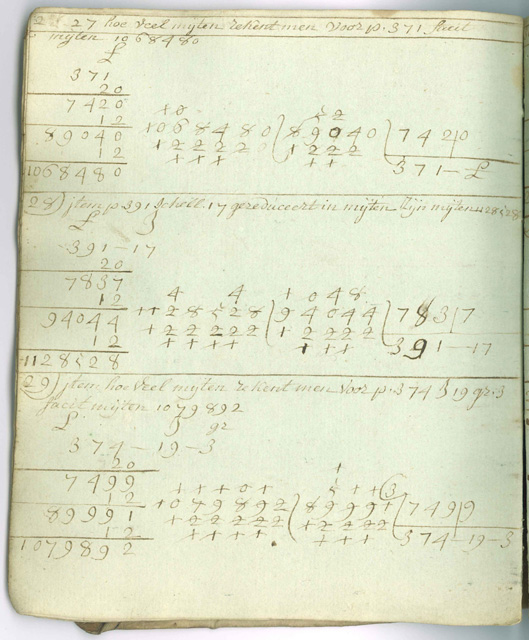 27 hoe veel mijten rekent men voor p. 371 facit
mijten 1068480
£
371
20
7420
12
89040
12
1068480
+0
+068480 ( 89040 ( 7420
+2222 +222
+++ ++
371 — £
28) jtem p 391 schell. 17 gereduceert in mijten zijn mijten 1128528
£ ʒ
391 — 17
20
7837
12
94044
12
1128528
4 4 + 048
++28528 ( 94044 ( 7837
+22222 +2222
++++ +++
391 — 17
29) jtem hoe veel mijten rekent men voor p. 374 ʒ 19 gr. 3
facit mijten 1079892
£ ʒ gr
374 — 19 — 3
20
7499
12
89991
12
1079892
+++0+ 5++(3
+079892 ( 8999+ ( 7499
+22222 +2222
++++ +++
374 — 19 — 3